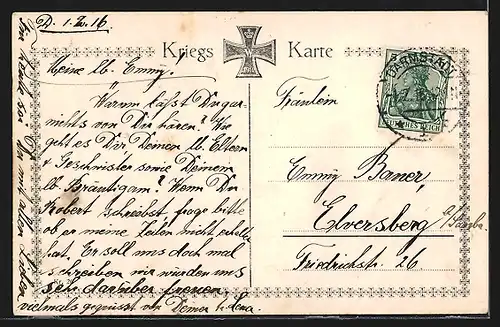 D. 1.IV.16.
Kriegs Karte
Meine lb. Emmy!
Warum läßt Du gar
nichts von Dir hören? Wie
geht es Dir Deinen lb. Eltern
& Geschwister sowie Deinem
lb. Bräutigam? Wenn Du
Robert schreibst, frage bitte
ob er meine Zeilen nicht erhalten
hat. Er soll uns doch mal
schreiben wir würden uns
sehr darüber freuen.
vielmals gegrüsst von Deiner lb. Lena.
Sei
Fräulein
Emmy Bauer,
Elversberg
b/Saarbr.
Friedrichstr. 26
DARMSTADT
DEUTSCHES REICH